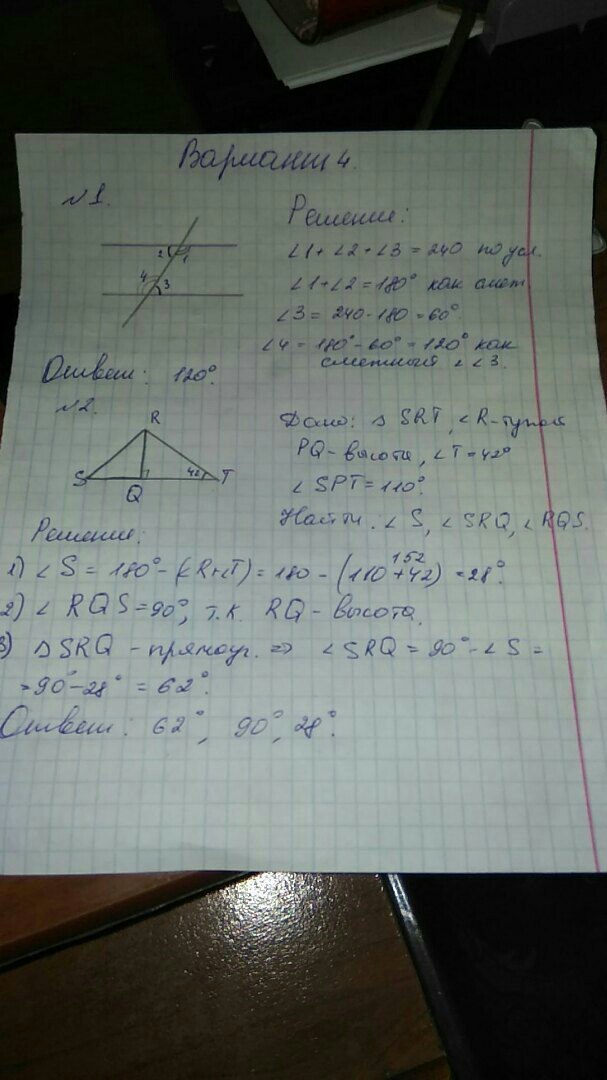 Вариант 4.
№1.
2 1
4 3
Решение:
∠1+∠2+∠3 = 240 по усл.
∠1+∠2=180° как смеж.
∠3 = 240-180=60°.
∠4 = 180°-60°=120° как
смежный с ∠3.
Ответ: 120°.
№2.
R
S Q 42 T
Дано: △ SRT, ∠R-тупой
PQ-высота, ∠T=42°
∠ SPT=110°.
Найти: ∠ S, ∠ SRQ, ∠RQS.
Решение:
152
1) ∠ S = 180°-(∠R+∠T) = 180 - (110°+42) = 28°.
2) ∠ RQS=90°, т.к. RQ-высота.
3) △ SRQ -прямоуг. => ∠ SRQ = 90°-∠ S =
=90°-28° = 62°.
Ответ: 62°, 90°, 28°.